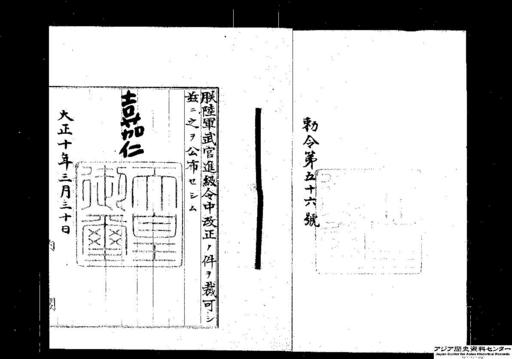 勅令第五十六號
朕陸軍武官進級令中改正ノ件ヲ裁可シ
茲ニ之ヲ公布セシム
嘉仁
天皇
御璽
大正十年三月三十日
内閣
アジア歴史資料センター
Japan Center for Asian Historical Records